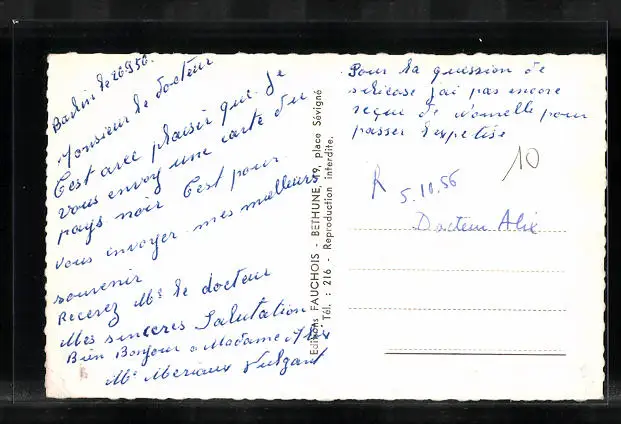 Barlin le 26 9 56
Monsieur le docteur
C'est avec plaisir que je
vous envoy une carte du
pays noir C'est pour
vous envoyer mes meilleurs
souvenir
Recevez Mr le docteur
Mes sinceres Salutation
Bien Bonjour a Madame Alix
Mr Meriaux Vulgant
Editions FAUCHOIS - BETHUNE, 19, place Sévigné
Tél. : 216 - Reproduction interdite.
Pour la quession de
silicose j'ai pas encore
reçue de nouvelle pour
passer l'expetise
10
R 5.10.56
Docteur Alix